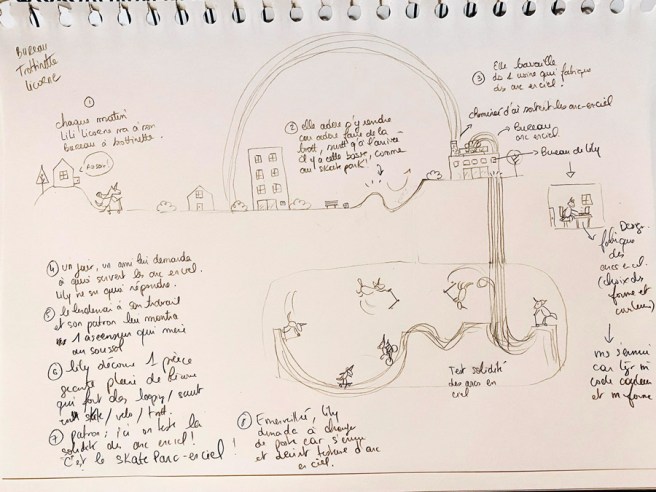 Bureau
Trottinette
licorne
①
chaque matin
Lili licorne va à son
bureau à trottinette.
② elle adore s'y rendre
car adore faire de la
trott, surtt qu'à l'arrivée
il y a cette bosse, comme
au skate park!
③ Elle travaille
ds 1 usine qui fabrique
des arc en ciel!
cheminée d'où sortent les arc-en-ciel
bureau
arc en ciel
Bureau de Lily
Design
fabrique
des
arcs e. ciel.
(choix ds
forme et
couleurs)
ms s'ennui
car tjr m̂
code couleur
et m̂ forme
④ un jour, un ami lui demande
à quoi servent les arc en ciel.
Lily ne su quoi répondre.
⑤ le lendemain à son travail
et son patron leur montra
1 ascenseur qui mène
au sous sol
⑥ Lily découvre 1 pièce
géante pleine de
qui font des loopy / saut
skate / vélo / trott.
⑦ patron: ici on teste la
solidité des arc en ciel!
C'est le skate Parc-en-ciel!
Test solidité
des arcs en
ciel
⑧ Emerveillée, Lily
demande à changer
de poste car s'ennuie
et devint testeuse d'arc
en ciel.